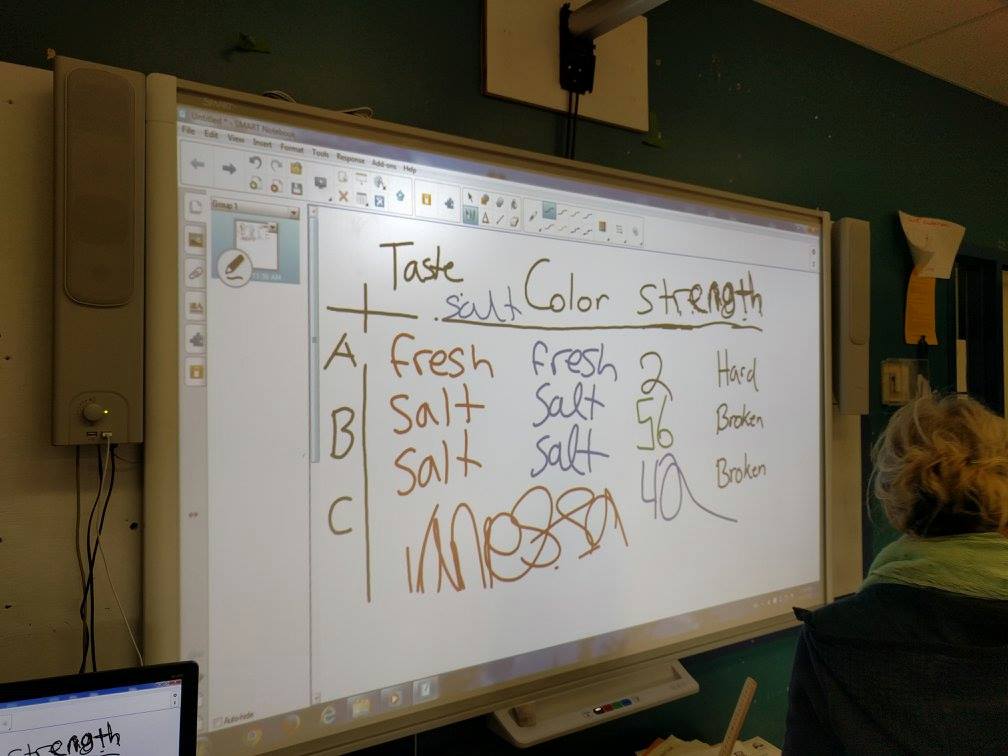 SMART
Untitled * - SMART Notebook
File Edit View Insert Format Tools Response Add-ons Help
Group 1
11:36 AM
Taste
salt Color strength
A fresh fresh 2 Hard
B salt salt 56 Broken
salt salt 40 Broken
C
Auto-hide
strength